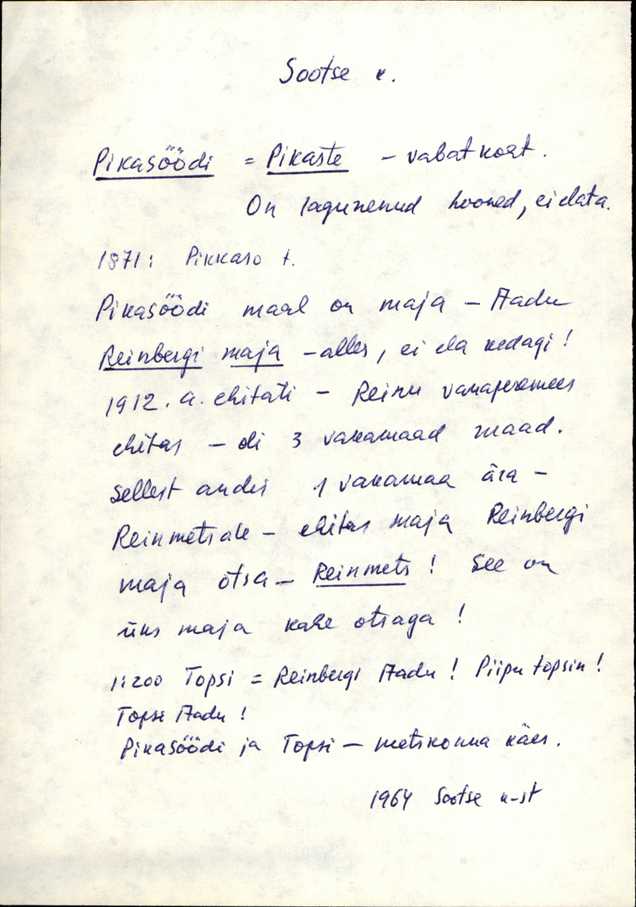 Sootse k.
Pikasöödi = Pikaste – vabatkoht.
On lagunenud hooned, ei elata.
1871: Pikkaso t.
Pikasöödi maal on maja – Aadu
Reinbergi maja – alles, ei ela kedagi!
1912. a. ehitati – Reinu vanaperemees
ehitas – oli 3 vakamaad maad.
Sellest andis 1 vakamaa ära –
Reinmetsale – ehitas maja Reinbergi
maja otsa – Reinmets! See on
üks maja kahe otsaga!
1:200 Topsi = Reinbergi Aadu! Piipu topsin!
Topsi Aadu!
Pikasöödi ja Topsi – metskonna käes.
1964 Sootse k-st